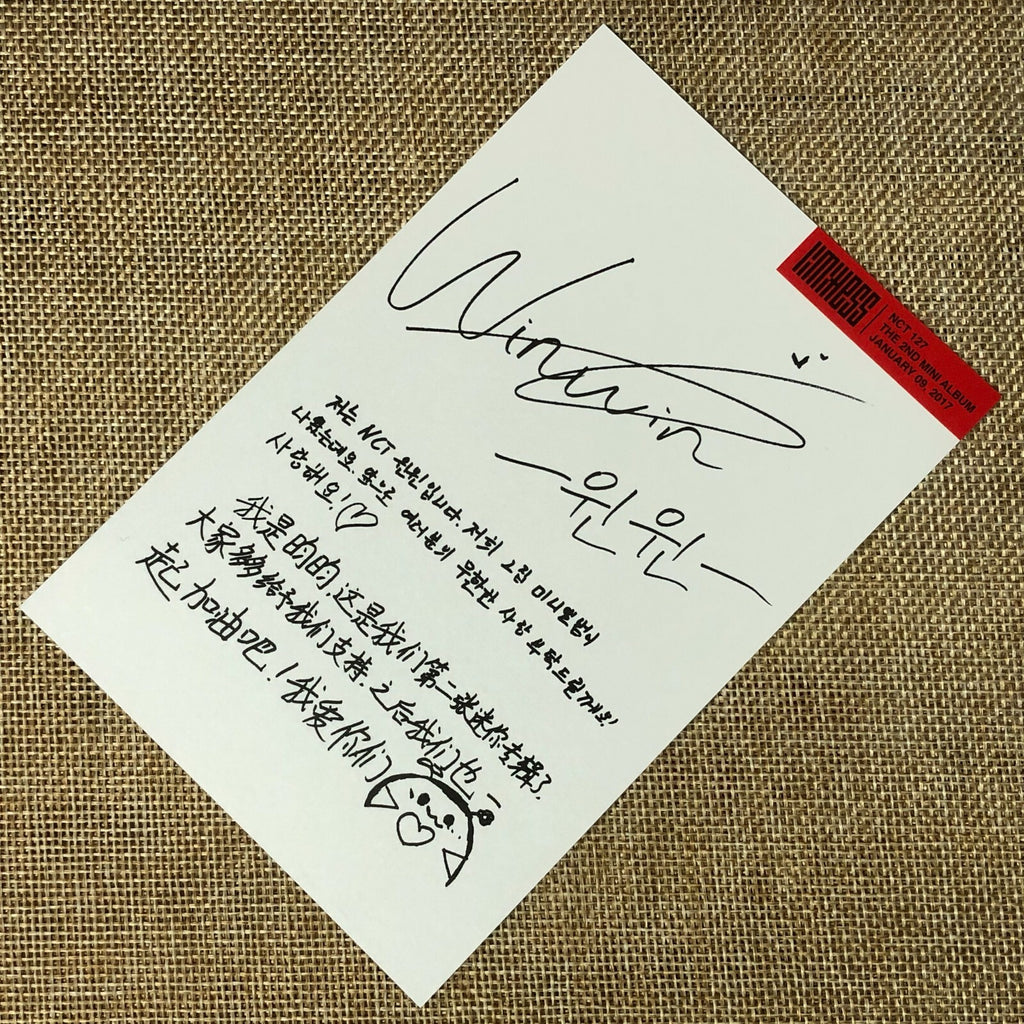 LIMITLESS
NCT 127
THE 2ND MINI ALBUM
JANUARY 09, 2017
Winwin
-윈윈-
저는 NCT 윈윈입니다. 저희 그룹 미니앨범이
나왔는데요. 앞으로 여러분의 무한한 사랑 부탁드릴게요!
사랑해요!♡
我是昀昀,这是我们第二张迷你专辑了.
大家多多给予我们支持.之后我们也一
起加油吧！我爱你们